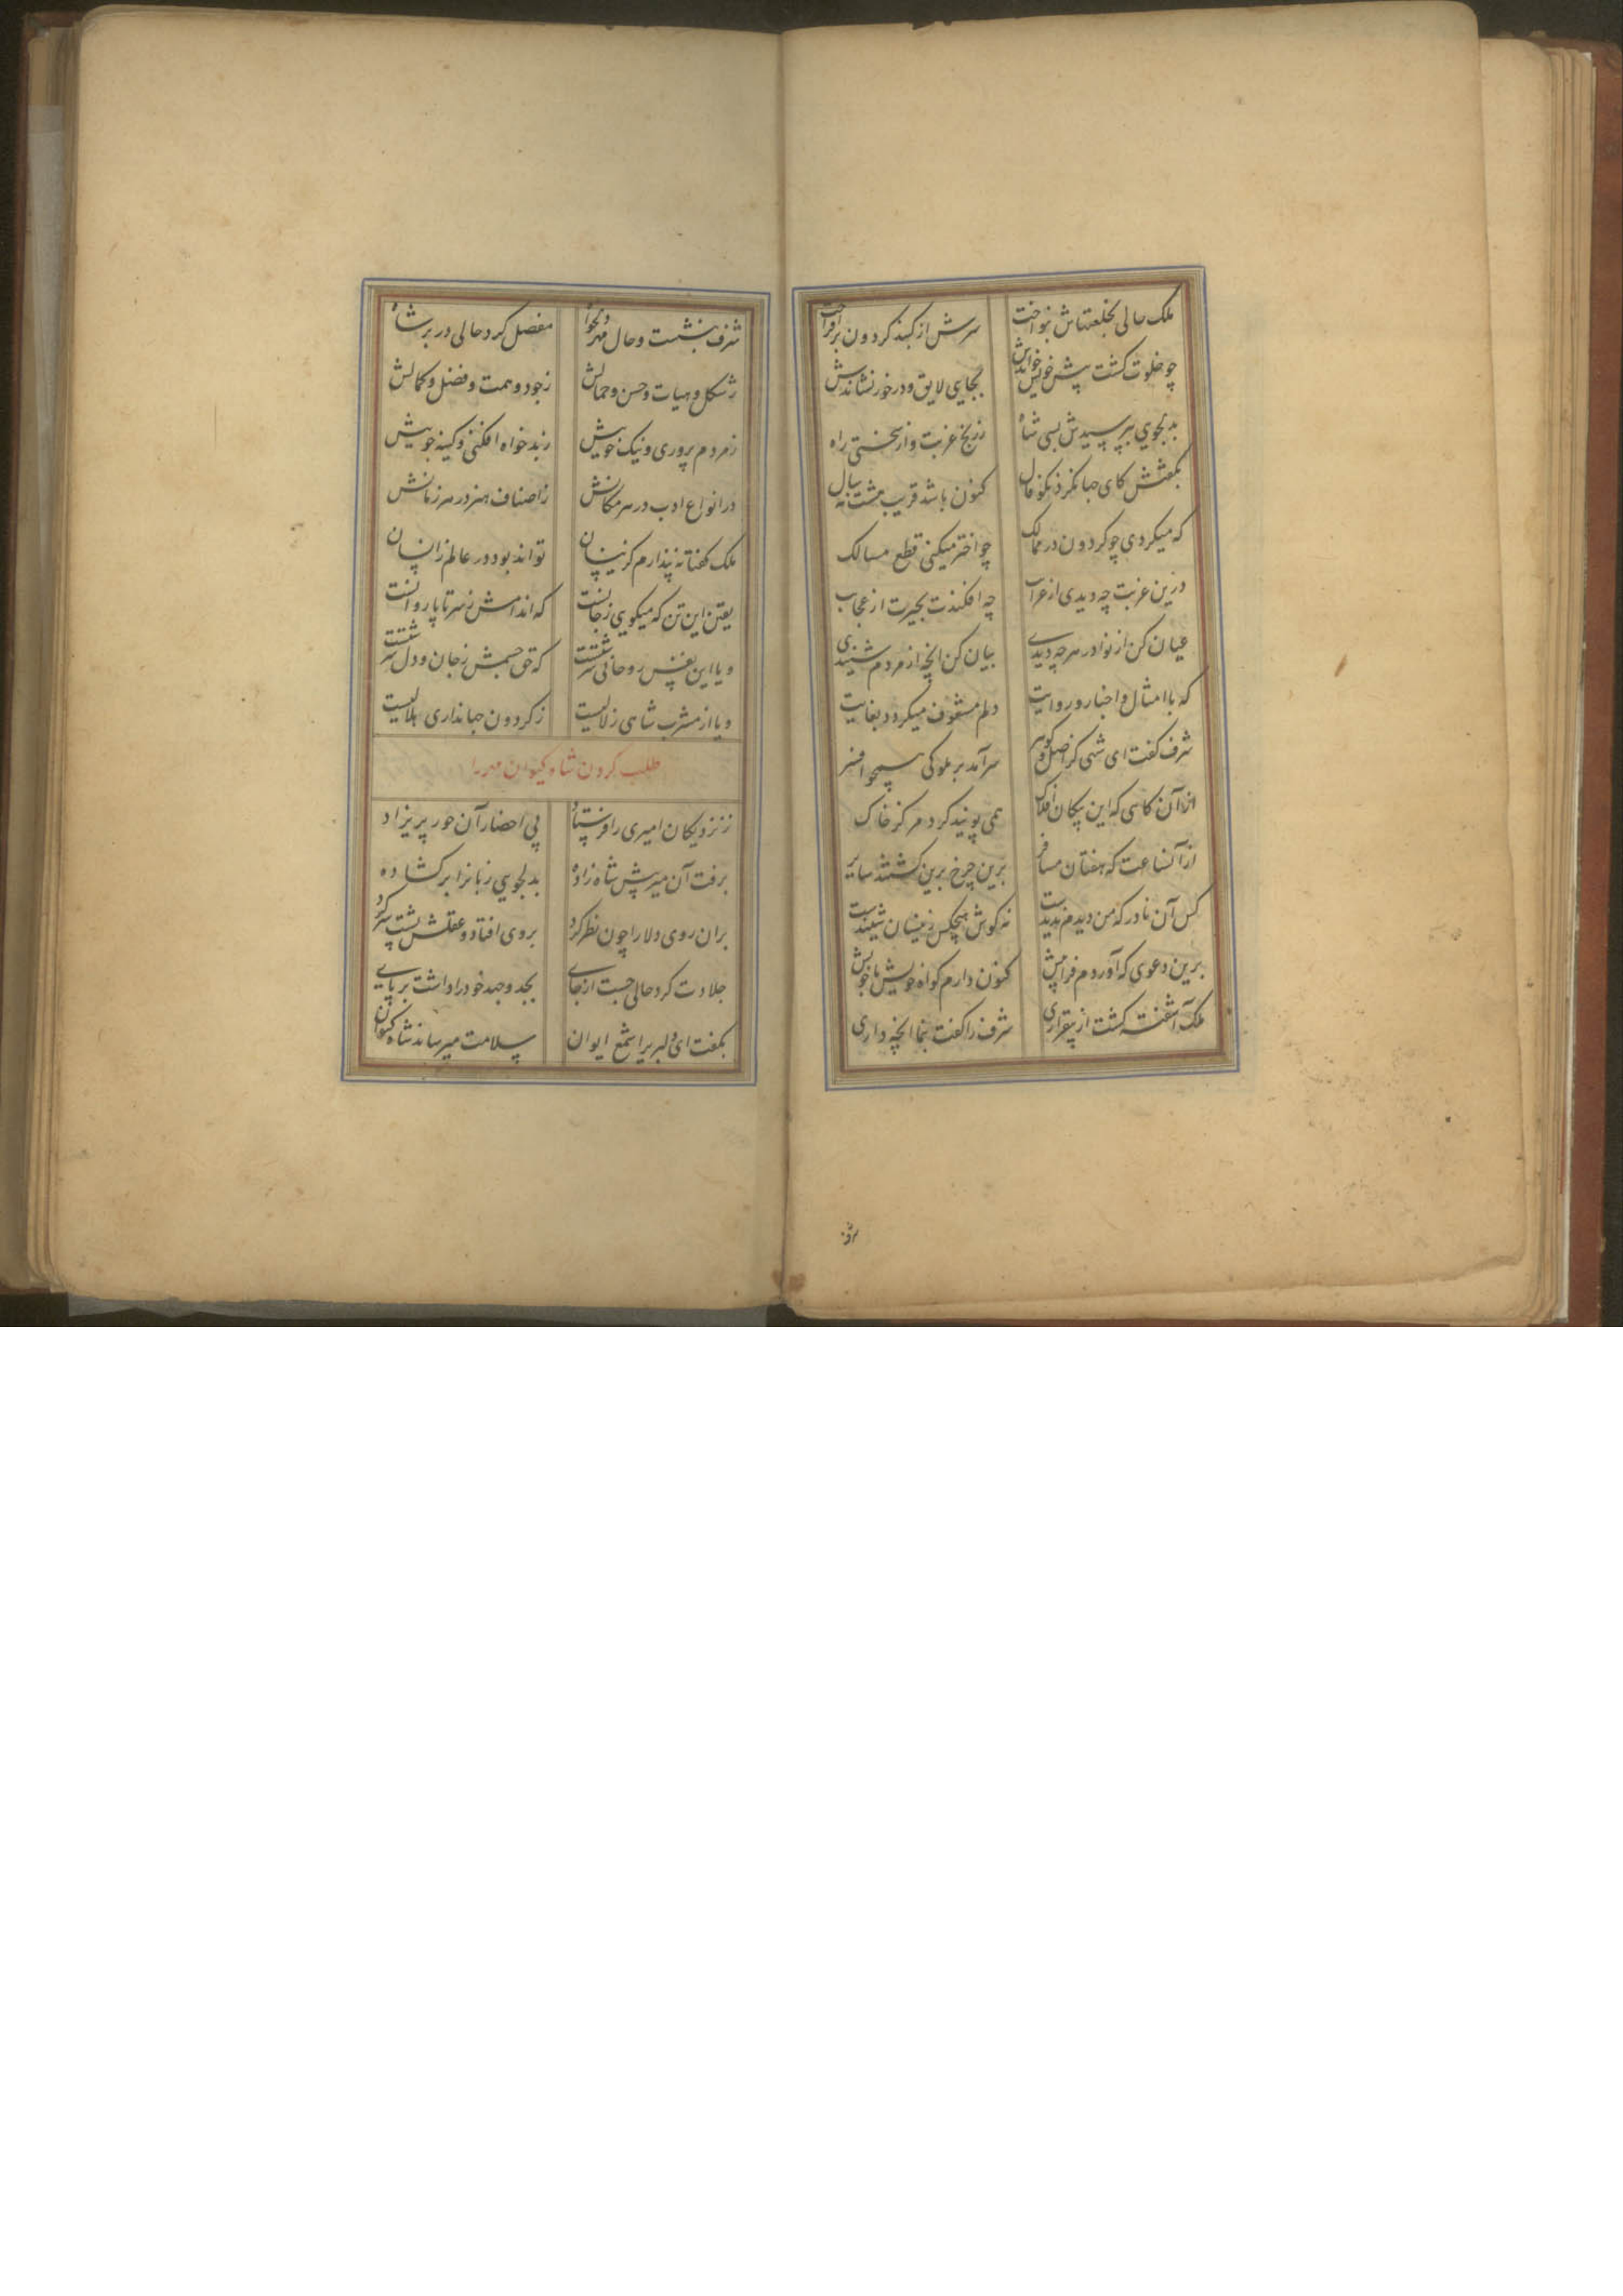 ملک حالی بخلعتهاش بنواخت سرش از کنبد کردون برافراخت
چو خلوت کشت پیش خویش خواندش بجایی لایق و درخور نشاندش
بدلجویی بپرسیدش بسی شاه ز رنج غربت و از سختی راه
بگفتش کای جهانکرد نکوفال کنون باشد قریب هشت نه سال
که میکردی چو کردون در ممالک چو اختر میکنی قطع مسالک
درین غربت چه دیدی از غرایب چه افکندت بحیرت از عجایب
عیان کن از نوادر هرچه دیدی بیان کن انچه از مردم شنیدی
که با امثال و اخبار و روایت دلم مشعوف میکردد بغایت
شرف کفت ای شهی کز اصل و کوهر سرآمد بر ملوکی همچو افسر
از آن کاهی که این پیکان افلاک همی پویند کرد مرکز خاک
از آنساعت که هفتان مسافر برین چرخ برین کشتند سایر
کس آن نادر که من دیدم ندیدست نه کوش هیچکس زینسان شنیدست
برین دعوی که آوردم فراپیش کنون دارم کواه خویش با خویش
ملک آشفته کشت از بیقراری شرف را کفت بنما انچه داری
شرف
شرف بنشست و حال مهر دلخواه مفصل کرد حالی در بر شاه
ز شکل و هیات و حسن و جمالش ز جود و همت و فضل و کمالش
ز مردم پروری و نیک خویش ز بدخواه افکنی و کینه جویش
در انواع ادب در هر مکانش ز اصناف هنر در هر زمانش
ملک کفتا نه پندارم کزینسان تواند بود در عالم ز انسان
یقین این تن که میکویی ز جانست که اندامش ز سر تا پا روانست
و یا این نفس روحانی سرشتست که حق جسمش ز جان و دل سرشتست
و یا از مشرب شاهی زلالیست ز کردون جهانداری هلالیست
طلب کردن شاه کیوان مهر را
ز نزدیکان امیری را فرستاد پی احضار آن حور پریزاد
برفت آن میر پیش شاه زاده بدلجویی زبانرا بر کشاده
بران روی دلارا چون نظر کرد بروی افتاد و عقلش پشت بر کرد
جلادت کرد حالی جست از جای بجد و جهد خود را داشت بر پای
بگفت ای دلبربرا شمع ایوان سلامت میرساند شاه کیوان